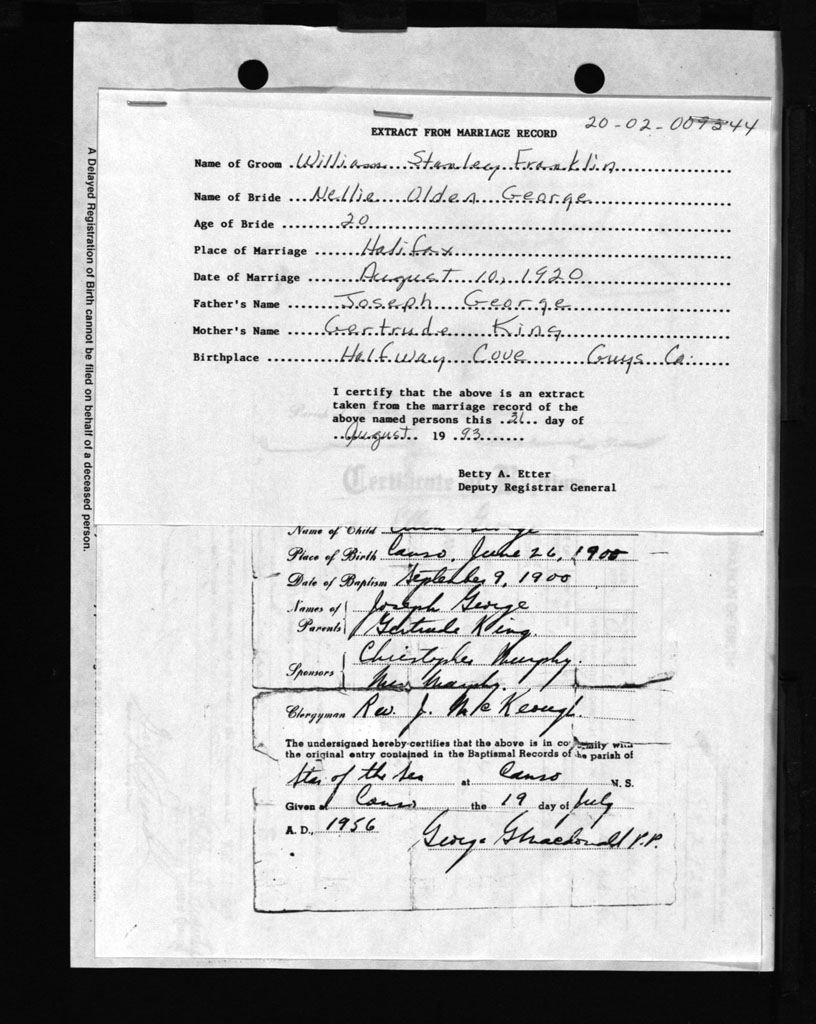 EXTRACT FROM MARRIAGE RECORD 20-02-009344
Name of Groom William Stanley Franklin
Name of Bride Nellie Olden George
Age of Bride 20
Place of Marriage Halifax
Date of Marriage August 10, 1920
Father's Name Joseph George
Mother's Name Gertrude King
Birthplace Halfway Cove Guys Co.
I certify that the above is an extract
taken from the marriage record of the
above named persons this 31 day of
August 19 93
Betty A. Etter
Deputy Registrar General
A Delayed Registration of Birth cannot be filed on behalf of a deceased person.
Name of Child George
Place of Birth Canso, June 26, 1900
Date of Baptism September 9, 1900
Names of Parents Joseph George
Gertrude King
Sponsors Christopher Murphy.
Murphy.
Clergyman Rev. J. McKeough.
The undersigned hereby certifies that the above is in conformity with
the original entry contained in the Baptismal Records of the parish of
Star of the Sea at Canso N.S.
Given at Canso the 19 day of July
A. D., 1956 George G Macdonald P.P.